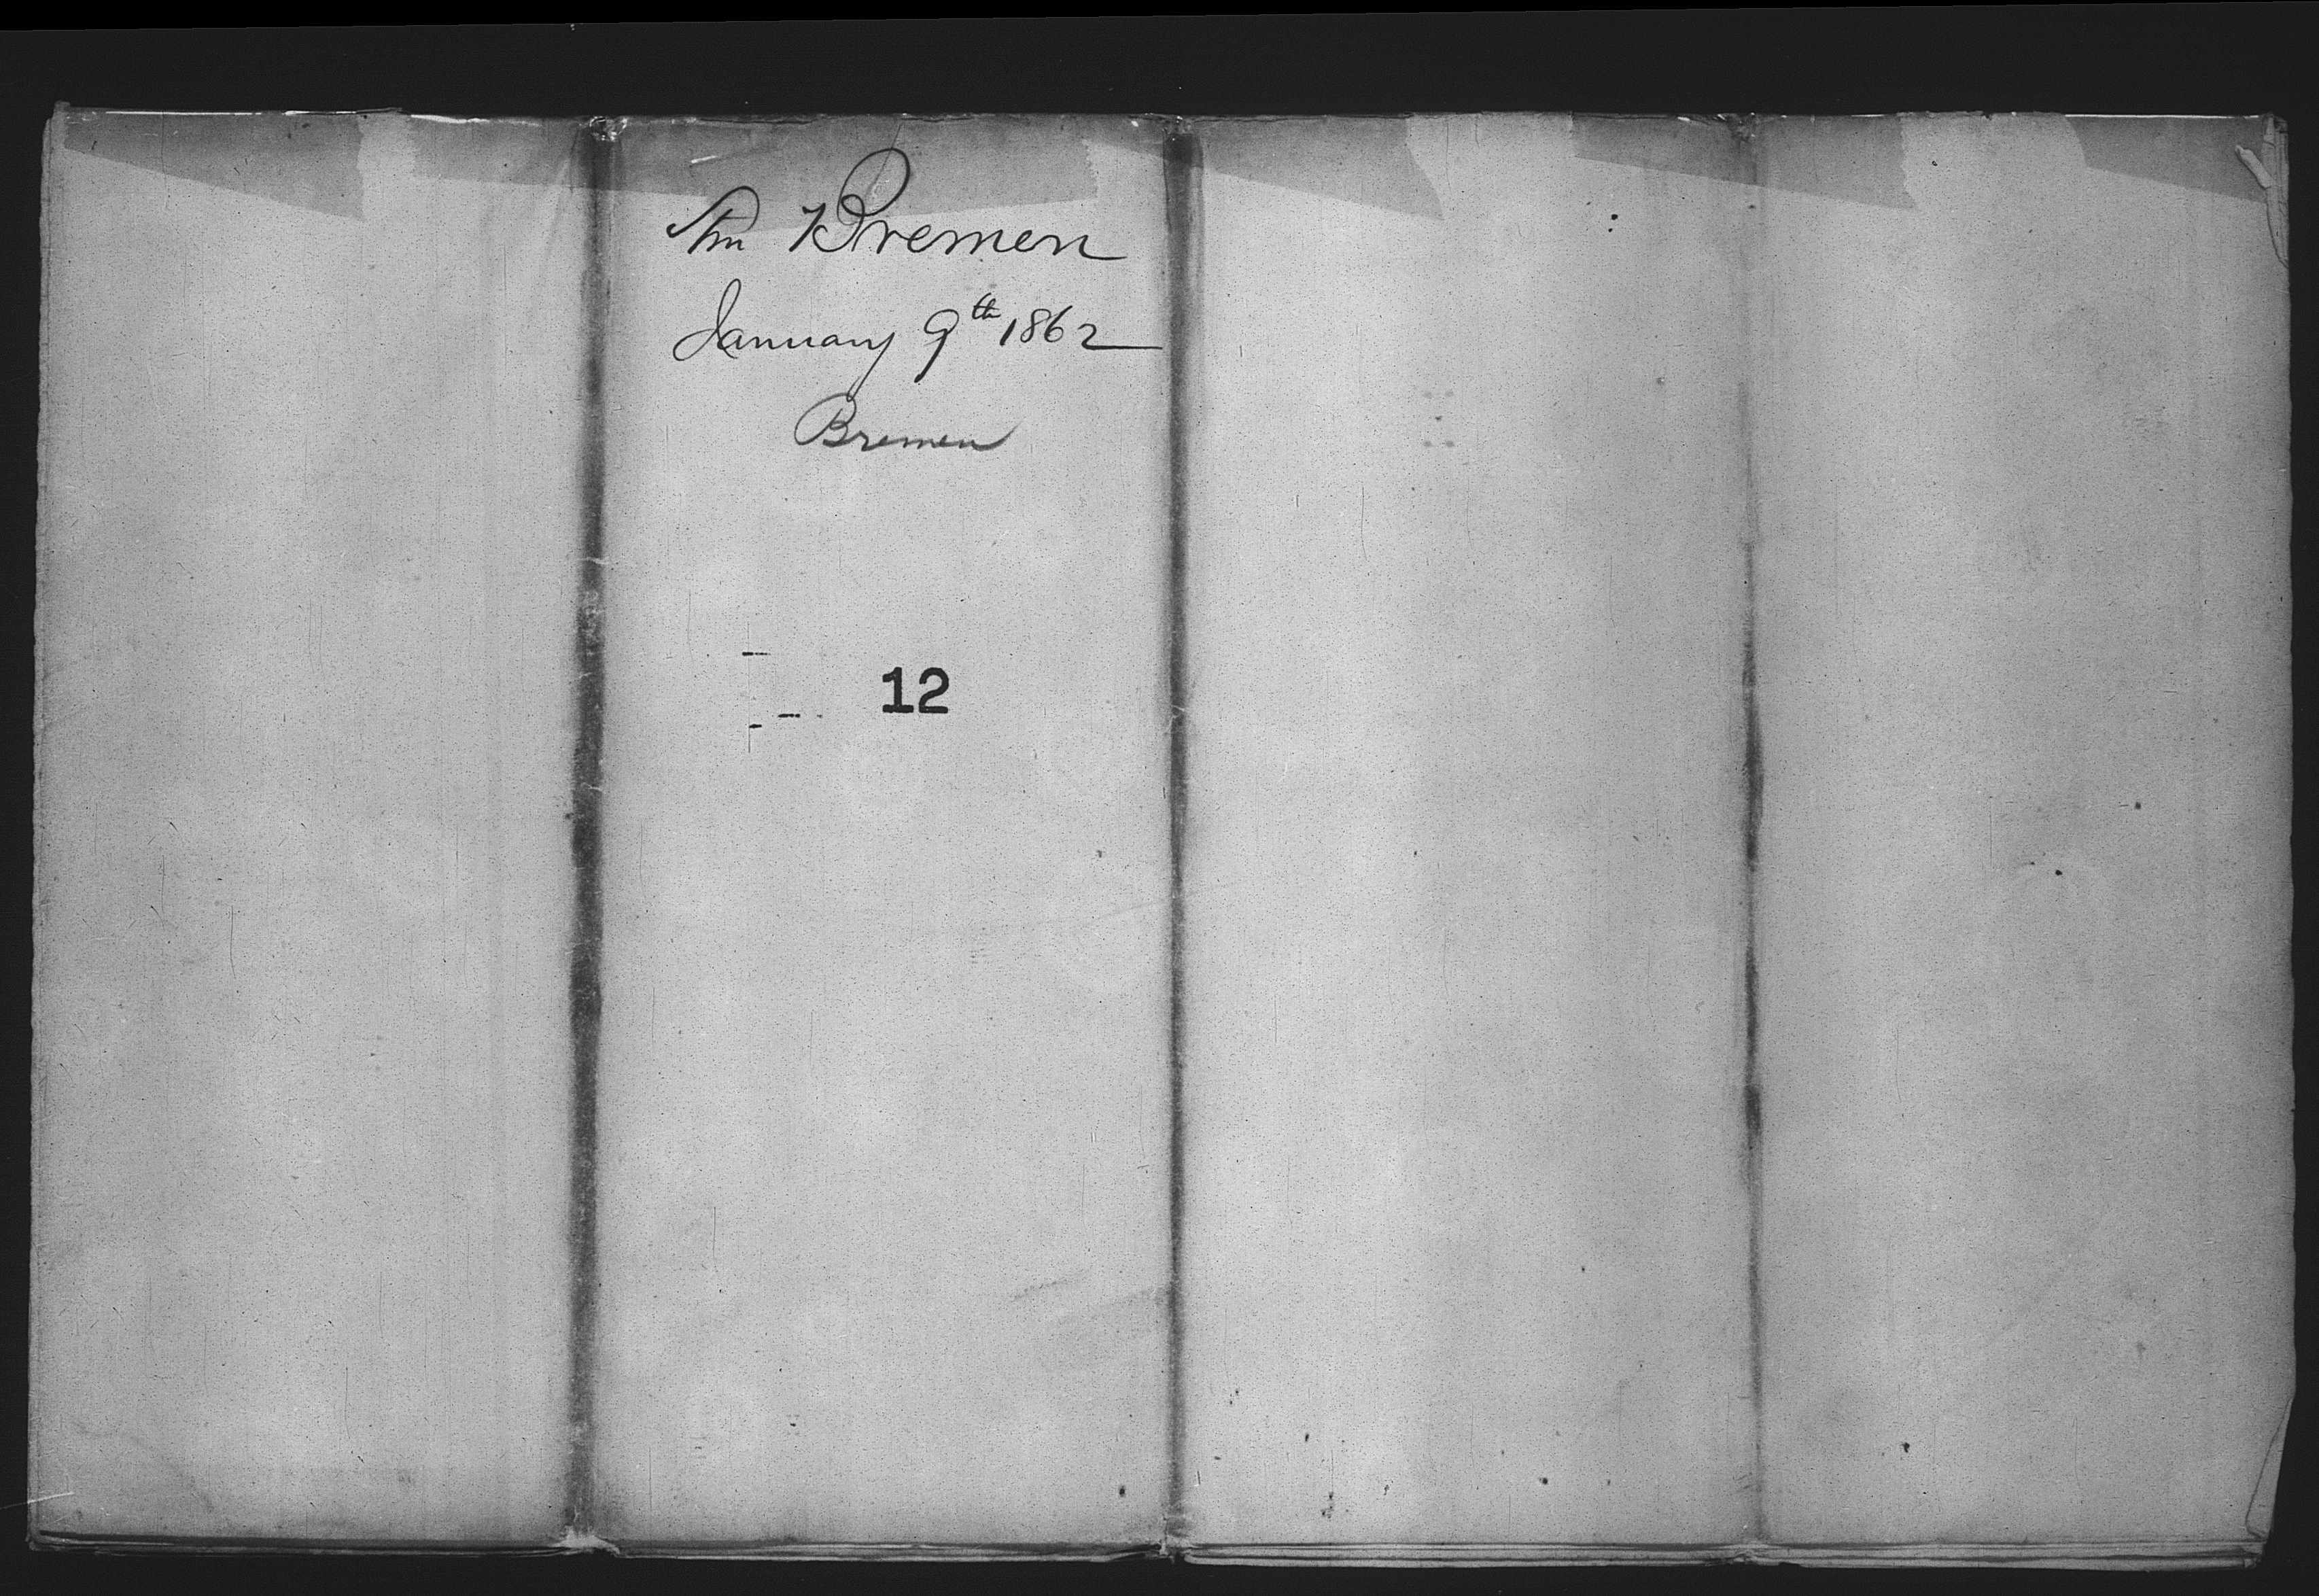 Stm Bremen
January 9th 1862
Bremen
12